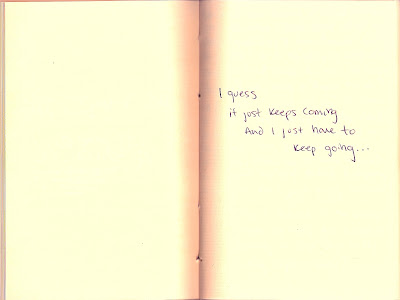 I guess
it just keeps coming
And I just have to
keep going...